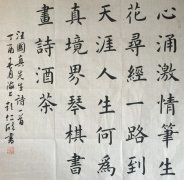 心涌激情筆生
花尋經一路到
天涯人生何爲
真境界琴棋書
畫詩酒茶
汪國真先生詩一首
丁酉年夏海上